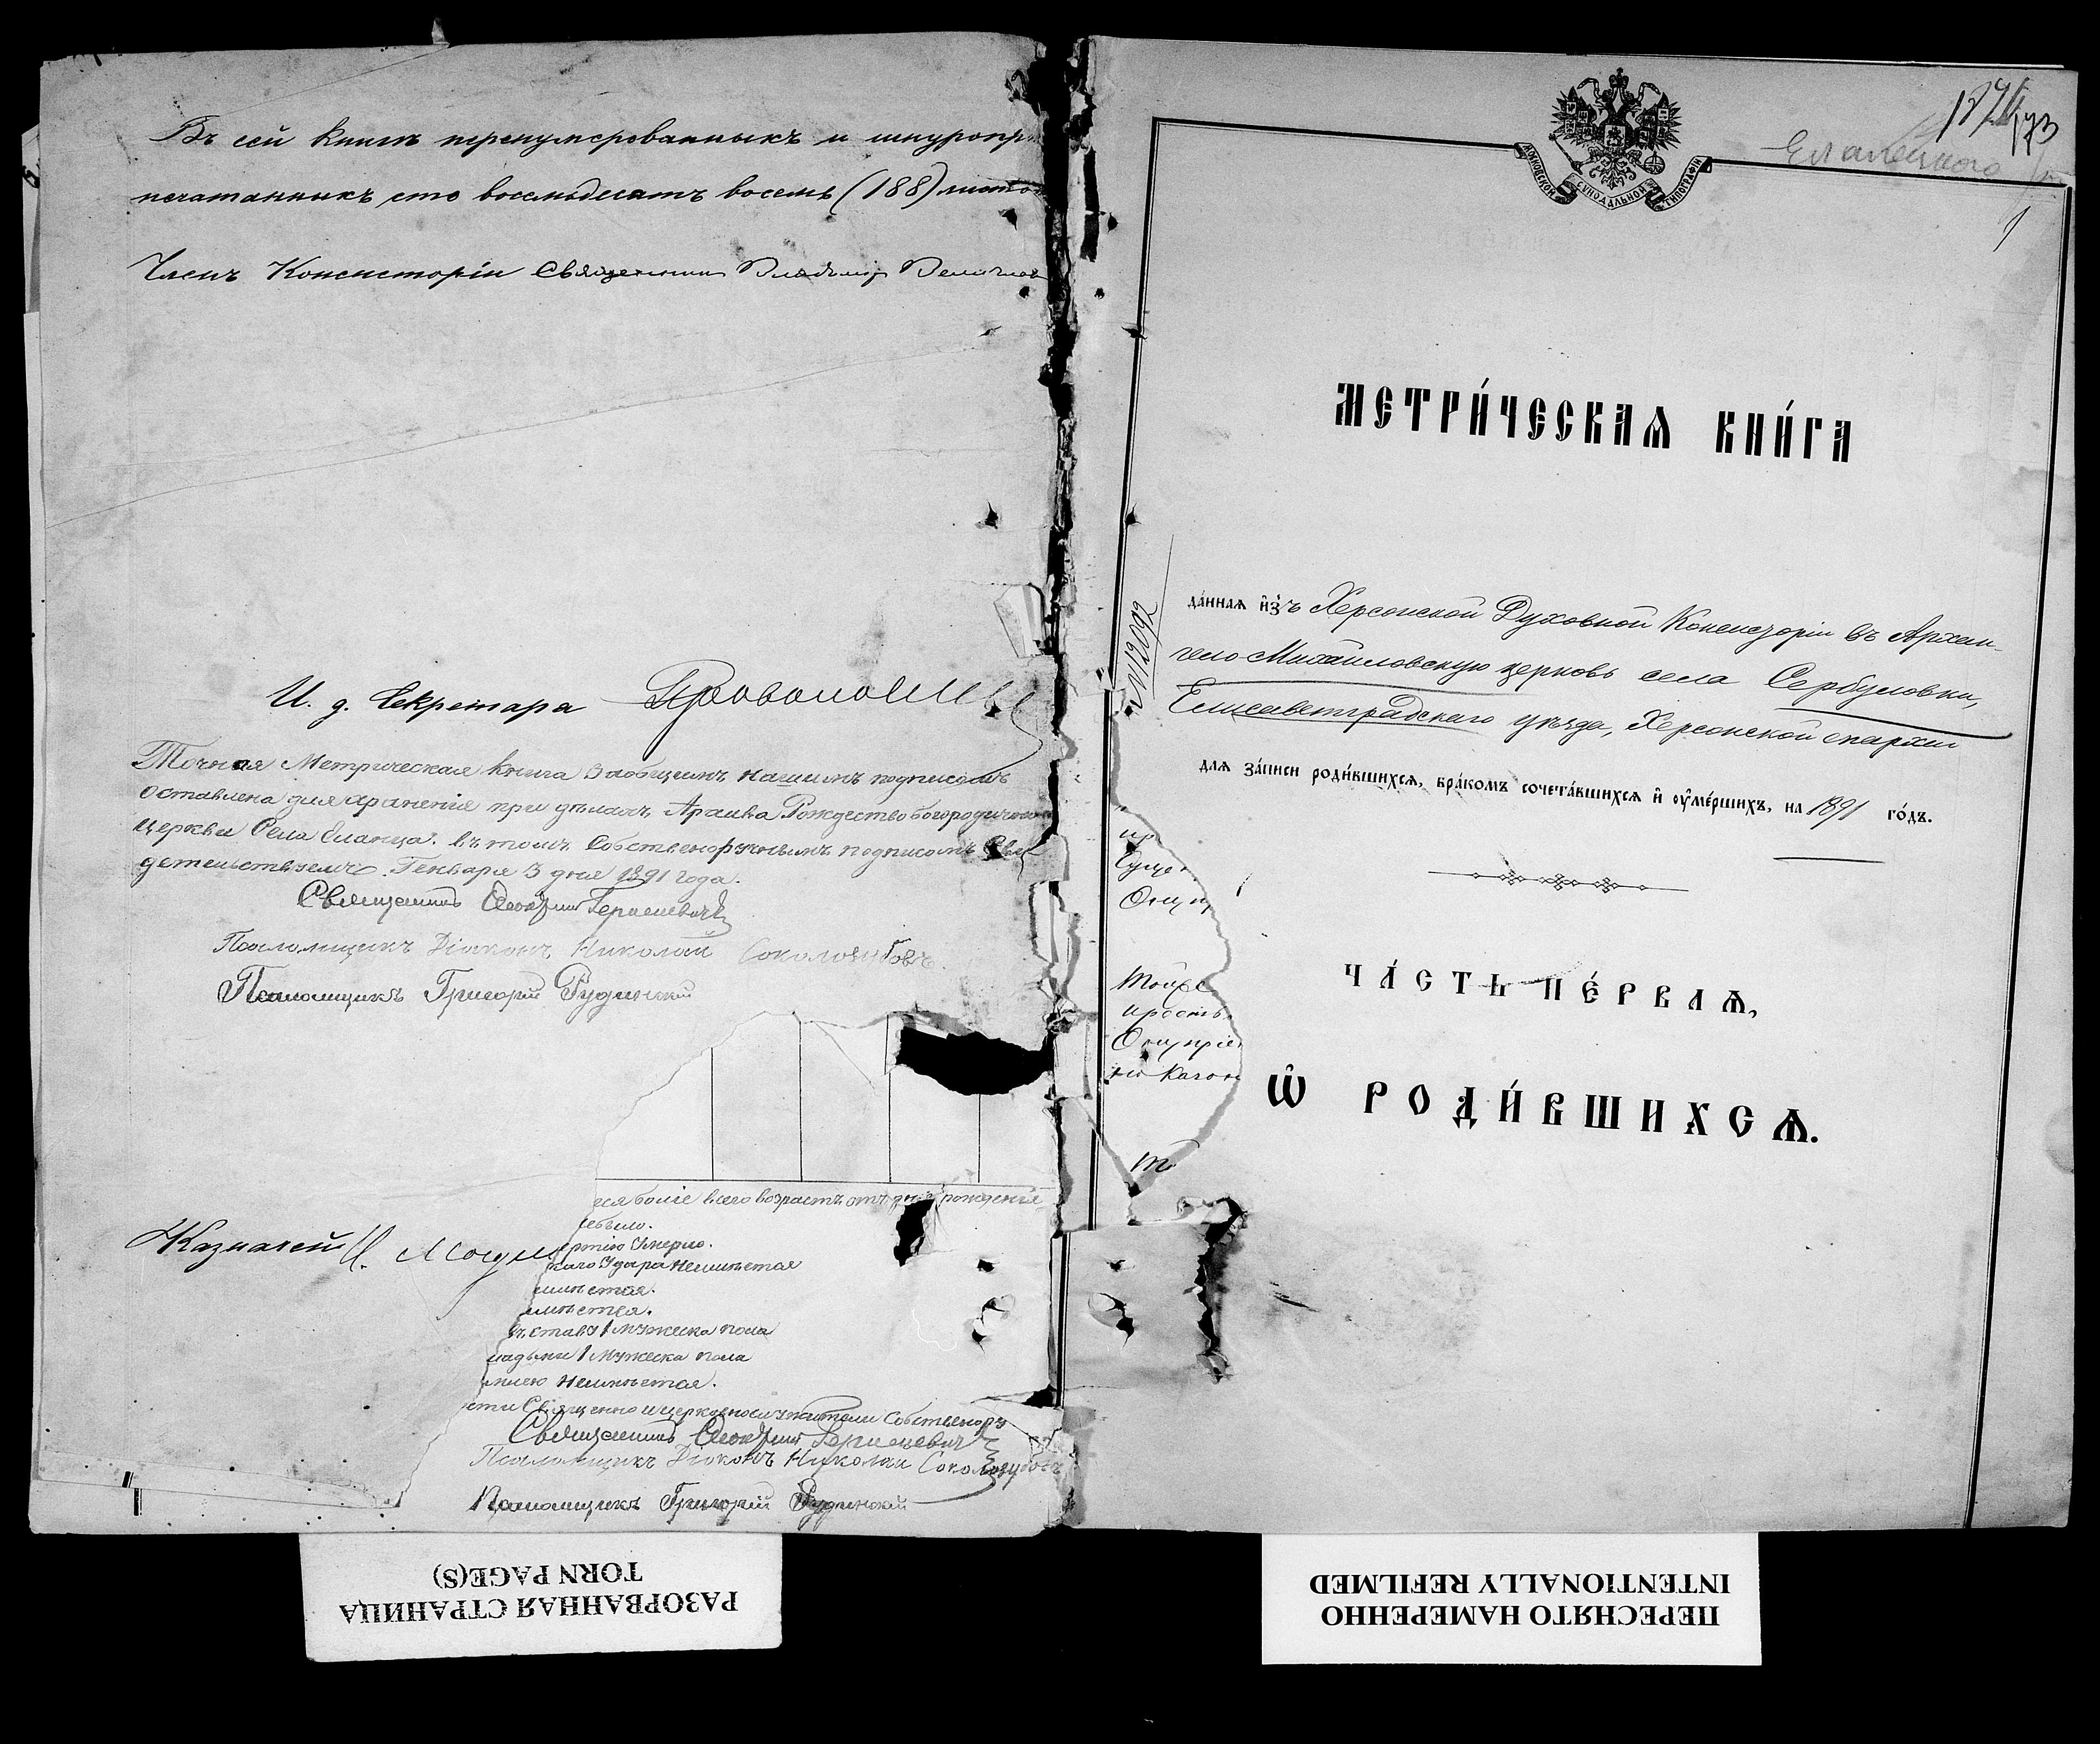 Въ сей книгѣ перенумерованныхъ и шнуропри
печатанныхъ сто восемьдесятъ восемь (188) листо
Членъ Консисторіи Священникъ Владиміръ
И. д. Секретаря
Точная Метрическая книга заобщимъ нашимъ подписомъ
оставлена для храненія при дѣлахъ Архива Рождествобогородичной
церкви Села Еланца. въ томъ Собственоручнымъ подписомъ Сви
детельствуемъ. Генваря 3 дня 1891 года.
Священникъ
Псаломщикъ Діаконъ Николай Соколовъ
Псаломщикъ Григорій Рудинскій
еся боліе всего возрастъ отъ дня рожденія
небыло.
ертію Умерло.
каго Удара Неимѣется
еимѣется.
имѣется.
ъ ставу 1 Мужеска пола
1 Мужеска пола
Неимѣется.
сти Священно и церковнослужители Собственор
Казначей
Священникъ
Псаломщикъ Діаконъ Николай
Псаломщикъ Григорій Рудинскій
РАЗОРВАННАЯ СТРАНИЦА
TORN PAGE(S)
173
Еланецкого
1
МОСКОВСКОЙ СѴНОДАЛЬНОЙ ТИПОГРАФІИ
МЕТРИ́ЧЕСКАѦ КНИ́ГА
№ 12092
да́ннаѧ и҆зъ Херсонской Духовной Консисторіи въ Архан-
гело-Михайловскую церковь села Сербуловки,
Елисаветградскаго уѣзда, Херсонской епархіи
для за́писи роди́вшихсѧ, бра́комъ сочета́вшихсѧ и҆ ѹ҆ме́ршихъ, на 1891 го́дъ.
ЧА́СТЬ ПЕ́РВАѦ,
Ѡ҆ РОДИ́ВШИХСѦ.
ПЕРЕСНЯТО НАМЕРЕННО
INTENTIONALLY REFILMED